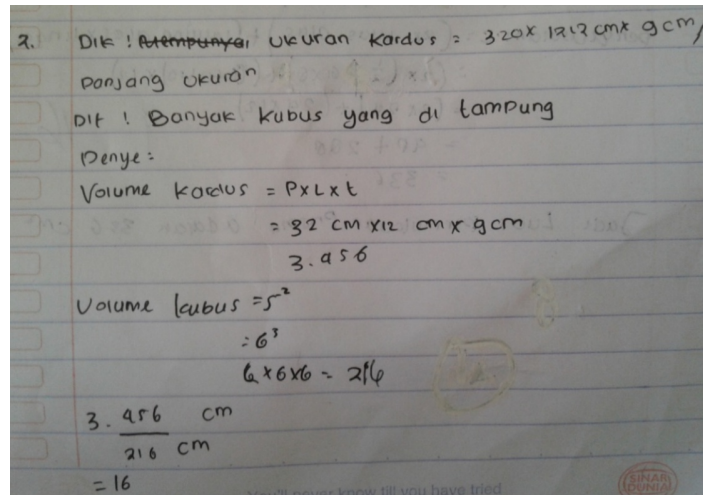 2. Dik : Mempunyai ukuran kardus = 320 x 1212 cm x 9 cm,
Panjang ukuran
Dit : Banyak kubus yang di tampung
Penye :
Volume kardus = P x L x t
= 32 cm x 12 cm x 9 cm
3.456
Volume kubus = s²
= 6³
6 x 6 x 6 = 216
3.456 cm
216 cm
= 16
You'll never know till you have tried
SINAR DUNIA